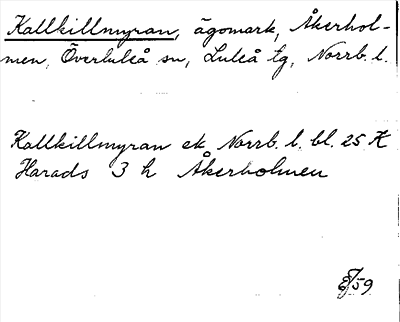 Kallkillmyran, ägomark, Åkerhol-
men, Överluleå sn, Luleå tg, Norrb. l.
Kallkillmyran ek Norrb. l. bl. 25 K
Harads 3 h Åkerholmen
59